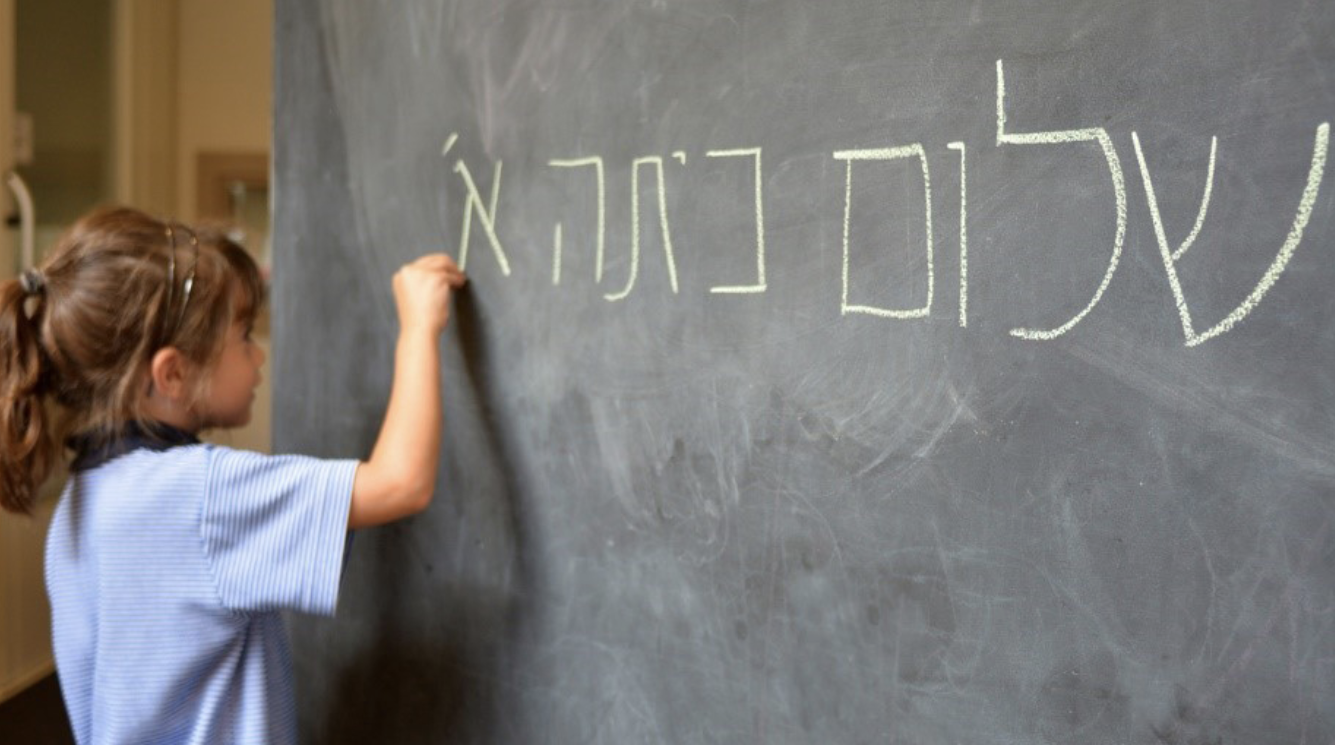 שלום כיתה א'